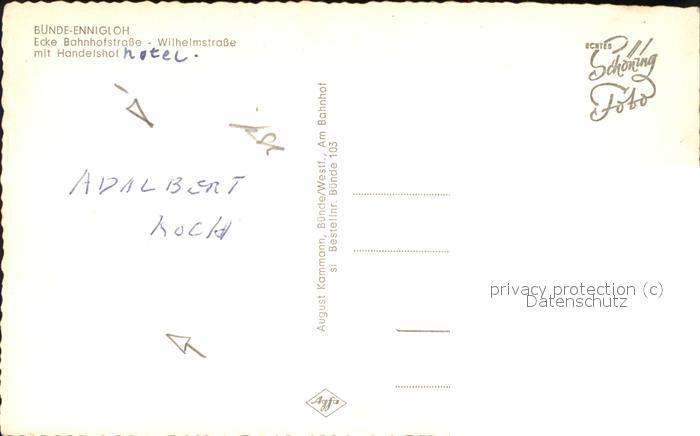 BÜNDE-ENNIGLOH
Ecke Bahnhofstraße - Wilhelmstraße
mit Handelshof hotel.
ECHTES
Schöning
Foto
ADALBERT
KOCH
August Kammann, Bünde/Westf., Am Bahnhof
si Bestellnr. Bünde 103
privacy protection (c)
Datenschutz
Agfa